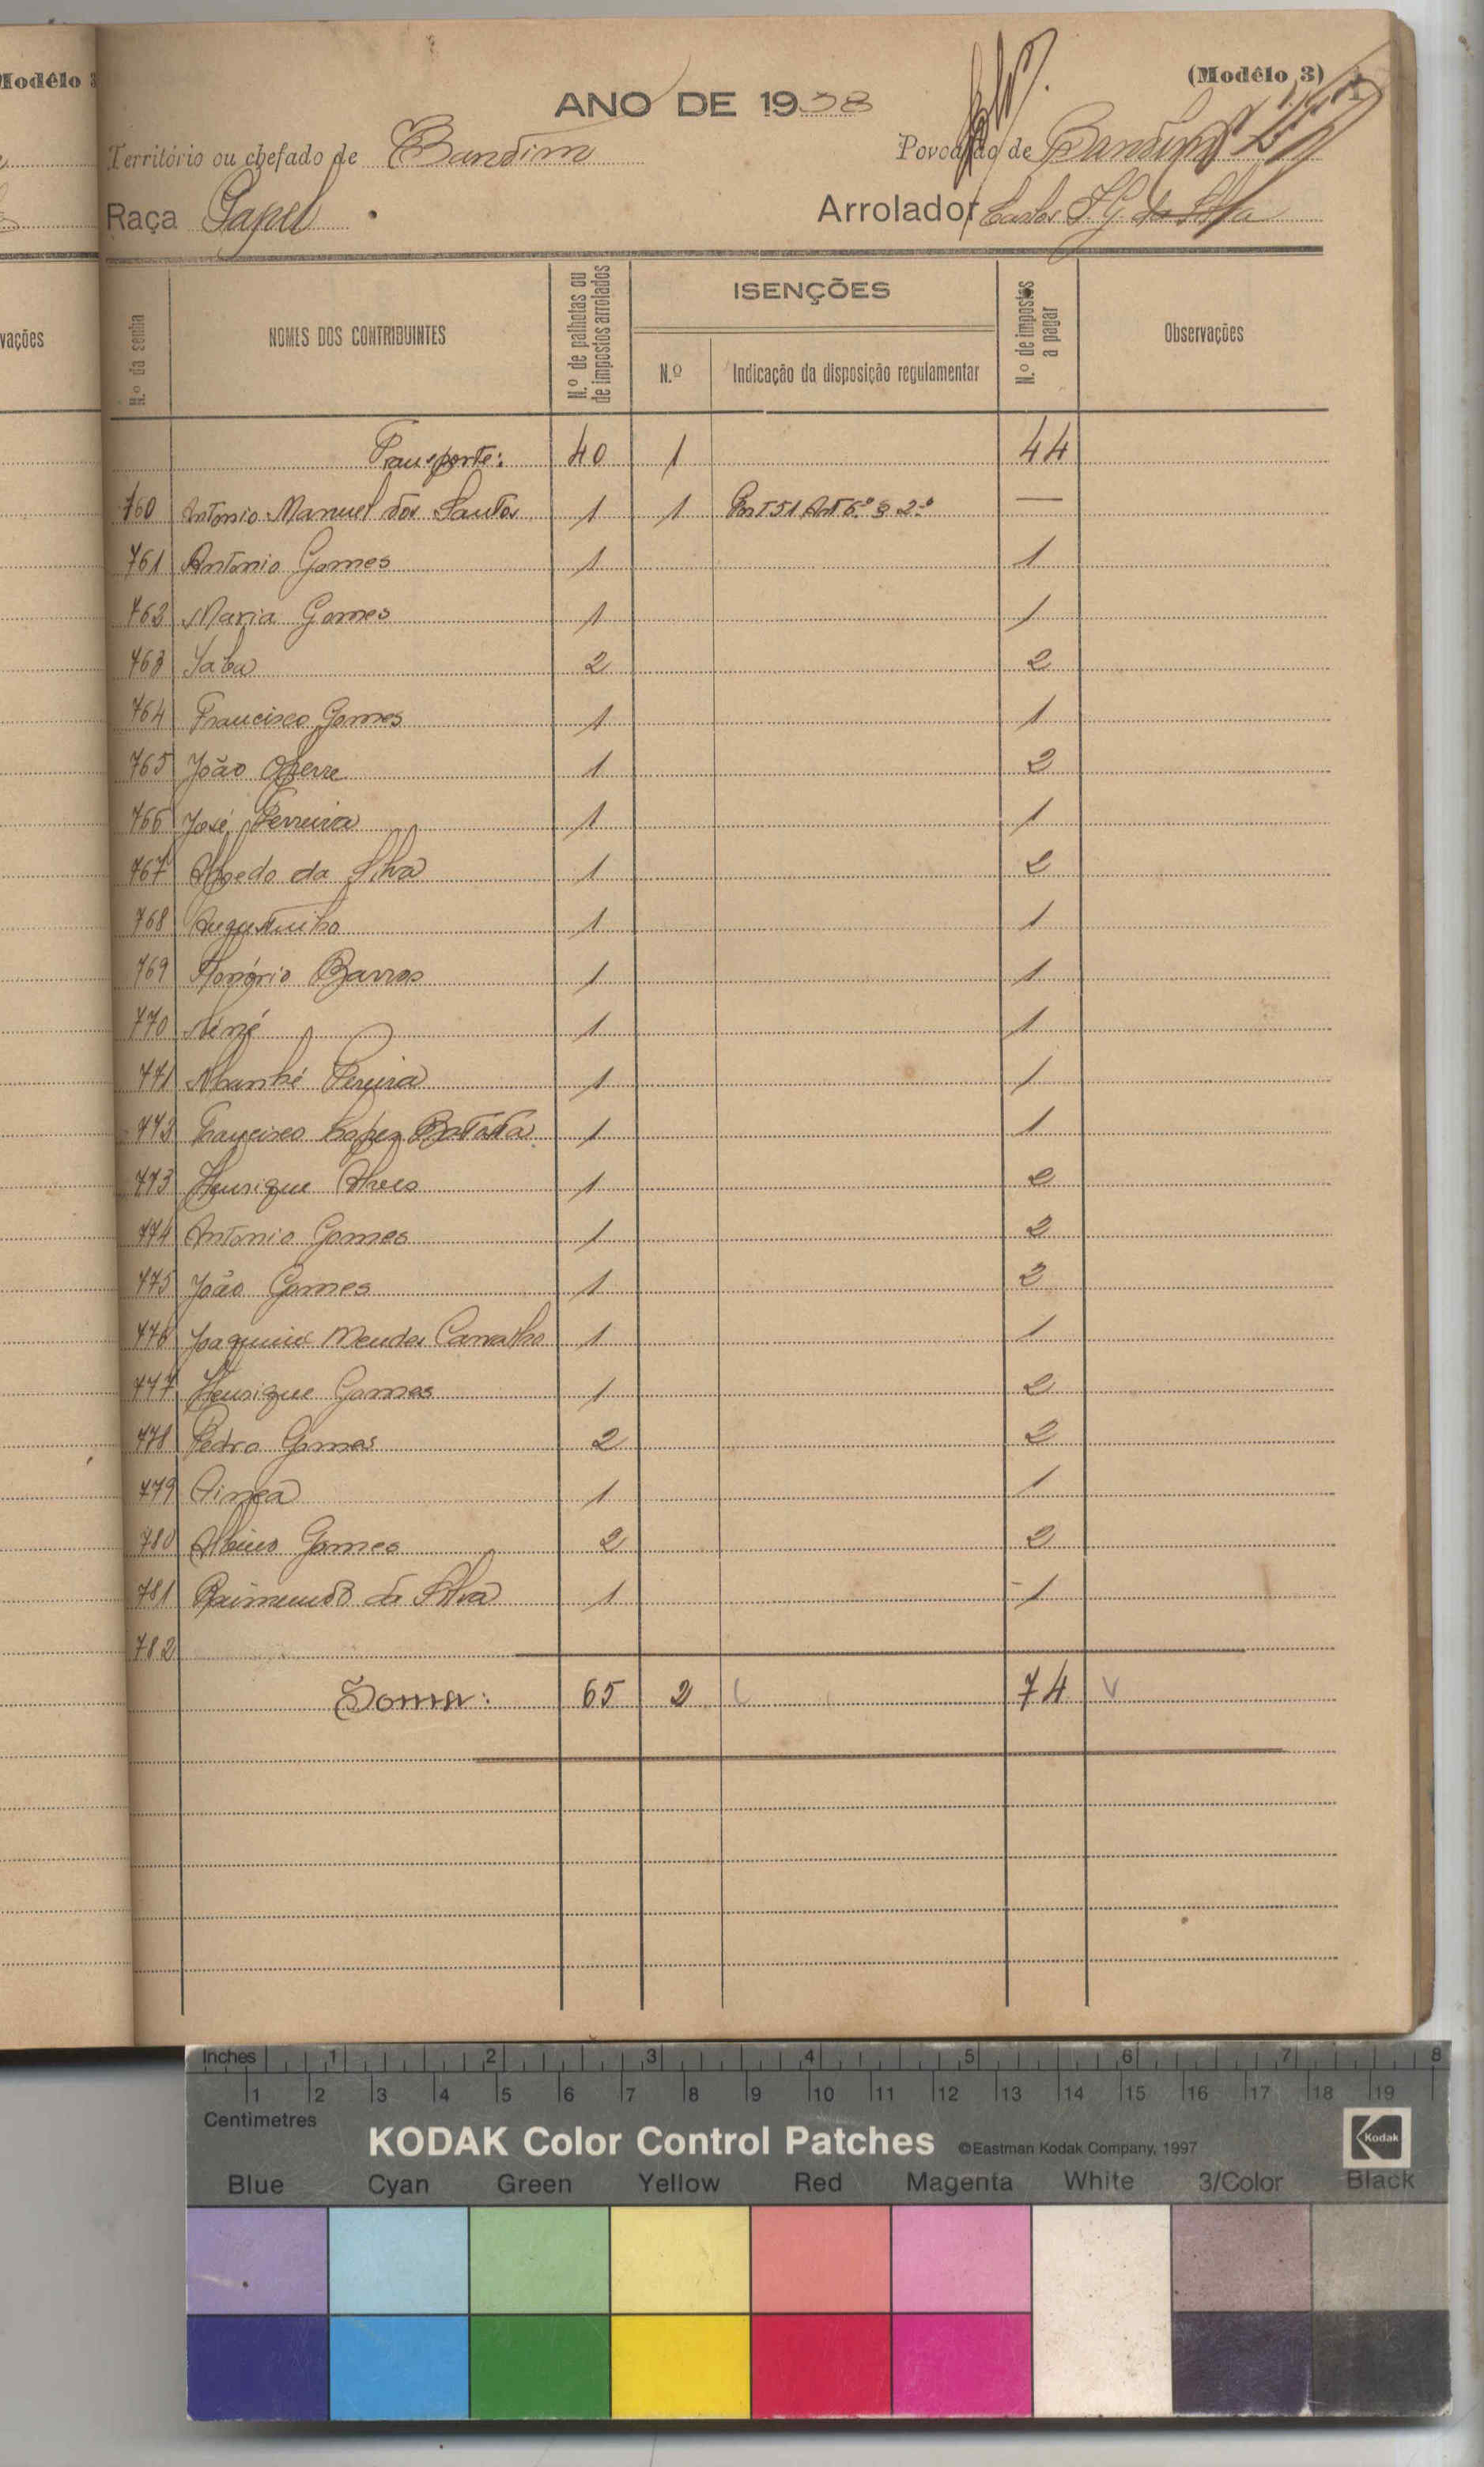 Modêlo 3
vações
(Modêlo 3)
ANO DE 1938
Território ou chefado de Bandim
Povoação de Bandim
Raça Papel
Arrolador Carlos
N.º da senha
NOMES DOS CONTRIBUINTES
N.º de palhotas ou de impostos arrolados
ISENÇÕES
N.º
Indicação da disposição regulamentar
N.º de impostos a pagar
Observações
Transporte: 40 1 44
760 Antonio Manuel dos Santos 1 1 Art 6º § 2º —
761 Antonio Gomes 1 1
762 Maria Gomes 1 1
763 Saba 2 2
764 Francisco Gomes 1 1
765 João 1 2
766 José Ferreira 1 1
767 da Silva 1 2
768 Augustinho 1 1
769 Honório Barros 1 1
770 Néné 1 1
771 Nhanhé Pereira 1 1
773 Francisco Lopez Batata 1 1
773 Henrique Alves 1 2
774 Antonio Gomes 1 2
775 João Gomes 1 2
776 Joaquim Mendes Carvalho 1 1
777 Henrique Gomes 1 2
778 Pedro Gomes 2 2
779 1 1
780 Albino Gomes 2 2
781 Raimundo da Silva 1 1
782
Soma: 65 2 74
Inches 1 2 3 4 5 6 7 8
1 2 3 4 5 6 7 8 9 10 11 12 13 14 15 16 17 18 19
Centimetres
KODAK Color Control Patches ©Eastman Kodak Company, 1997 Kodak
Blue Cyan Green Yellow Red Magenta White 3/Color Black